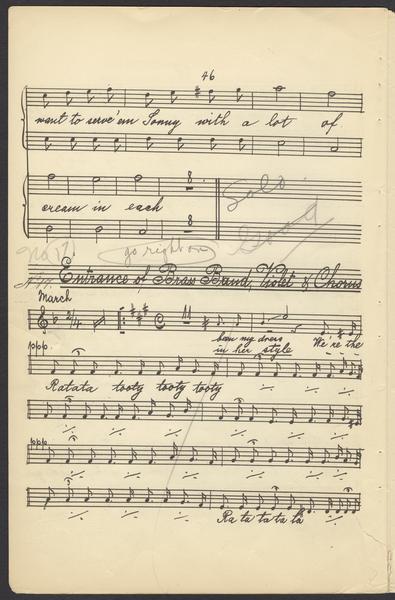 46
want to serve 'em Sonny with a lot of
cream in each
8 Solo
8 Good
No 17) go right on
Entrance of Brass Band, Violet & Chorus
March
2/4
in her style We're the
ppp.
Ratata tooty tooty tooty
ppp
Ra ta ta ta ta